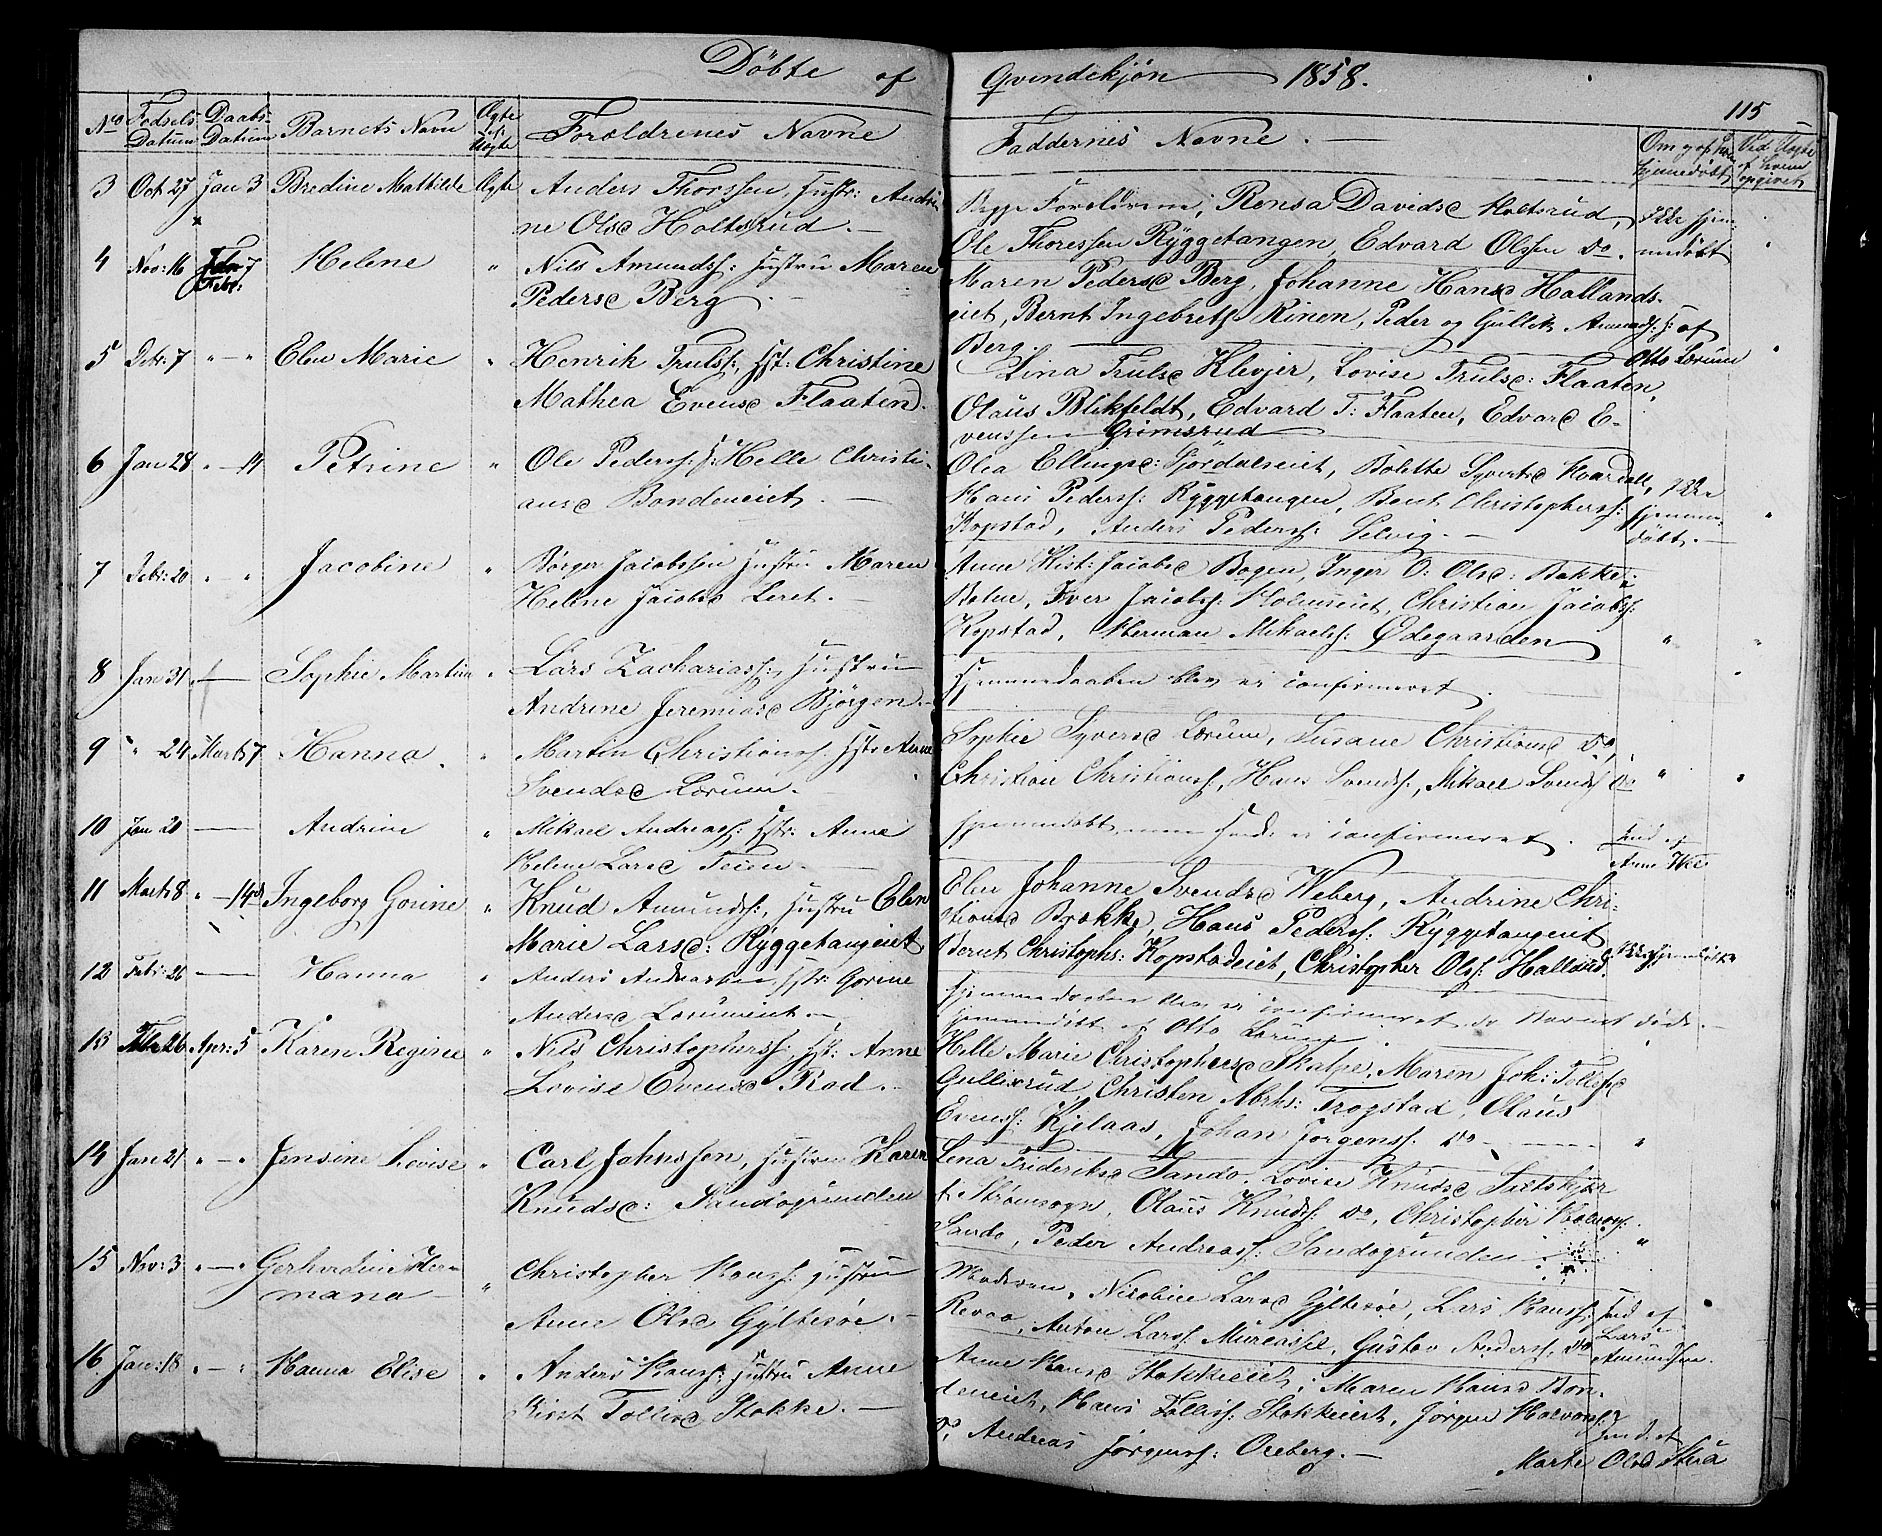 Döbte af Qvindekjøn 1858.
115
No Fødsels Datum Daabs Datum Barnets Navn Ægte el. Uægte Forældrenes Navne
Faddernes Navne
3 Oct 27 Jan 3 Bredine Mathilde Ægte Anders Thorssen, Hustr: Andri
ne Olsd Holtsrud.
Begge Forældrene, Rensa Davidsd Holtsrud,
Ole Thoressen Ryggetangen, Edvard Olssen Do.
Ikke hjem
medöbt
4 Nov: 16 Feb: 7 Helene " Nils Amundss: Hustru Maren
Pedersd Berg
Maren Pedersd Berg, Johanne Hansd Hallands-
eiet, Bernt Ingebretss Rinen, Peder og Gullek Amunds:
Berg.
H: af
Otto Lørum
5 Debr: 7 " — " Elen Marie " Henrik Trulss:, Hst: Christine
Mathea Evensd Flaatend.
Lina Trulsd Klevjer, Lovise Trulsd: Flaaten,
Olaus Blikfeldt, Edvard T: Flaaten, Edvard E-
venssen Grimsrud
6 Jan 28 " — 14 Petrine " Ole Pederss: H: Helle Christi-
ansd Bondeneiet.
Olea Ellingsd: Fjørdalseiet, Bolette Syvertsd Hvardal,
Hans Pederss: Ryggetangen, Bent Christophers:
Kopstad, Anders Pederss: Selvig.
Ikke
hjemme
döbt.
7 Debr: 20 " — " Jacobine " Børger Jacobssen Hustru Maren
Helene Jacobsd Leret.
Anne Kist: Jacobsd Bogen, Inger O: Olsd: Bakke,
Bolene, Iver Jacobss: Holmseiet, Christian Jacobs:
Kopstad, Herman Mikaelss: Ødegaarden
8 Jan 31 — Sophie Martine " Lars Zachariass:, Hustru
Andrine Jeremiasd Bjørgen.
Hjemmedaaben blev ei confirmeret.
9 " 24 Marts 7 Hanna. " Martin Christianss: Hst: Anne
Svendsd Lørum.
Sophie Syversd Lørum, Susane Christiansd Do,
Christian Christianss:, Hans Svendss:, Mikael Svendss Do
10 Jan 20 — Andrine " Mikael Andreass: Hstr: Anne
Helene Larsd Teien.
Hjemmedöbt, men Hand: ei confirmeret.
Hmd af
Anne
11 Mart: 8 " — 14de Ingeborg Gorine " Knud Amunds:, Hustru Elen
Marie Larsd: Ryggetangeiet
Elen Johanne Svendsd Weberg, Andrine Chri-
stiansd Brække, Hans Pederss: Ryggetangeiet
Bernt Christophs: Kopstadeiet, Christopher Olss: Hallerud.
Ikke hjemmdöbt
12 Febr: 26 — Hanna " Anders Andersen Hstr: Gorine
Andersd Lørumeiet.
Hjemmedaaben blev ei confirmeret da Barnet döde.
Hjemmedöbt af Otto Lørum
13 26 Apr: 5 Karen Regine " Nils Christopherss: Hst: Anne
Lovise Evensd Rød.
Helle Marie Christophersd Skalpe, Maren Joh: Tollefsd
Gullixrud, Christen Abrhs: Trogstad, Olaus
Evenss: Kjelaas, Johan Jørgenss: Do
14 Jan 21 " — " Jensine Lovise " Carl Johnssen, Hustru Karen
Knudsd: Sandøgrunden
Lena Frideriksd Sandø, Lovise Knudsd Saltskjær
i Strømsogn, Olaus Knudss: Do, Christopher Halvors:
Sandø, Peder Andreass: Sandøgrunden
15 Nov: 3 " — " Gerhardine Her-
mana " Christopher Hanss: Hustru
Anne Olsd Gyltesøe.
Moderen, Nicoline Larsd Gyltesøe, Lars Hanss:
Revaa, Anton Larss: Mureassel, Gustav Anderss: Do
Hmd af
Lars
Amundsen.
16 Jan: 18 " — " Hanna Elise " Anders Hanss: Hustru Anne
Kirst. Tollefsd Stokke.
Anne Hansd Stokkeeiet, Maren Hansd Bon-
deneiet, Hans Tollefss: Stokkeiet, Jørgen Halvors:
T, Andreas Jørgenss: Oreberg.
Hmd. af
Marte Olsd Sterd